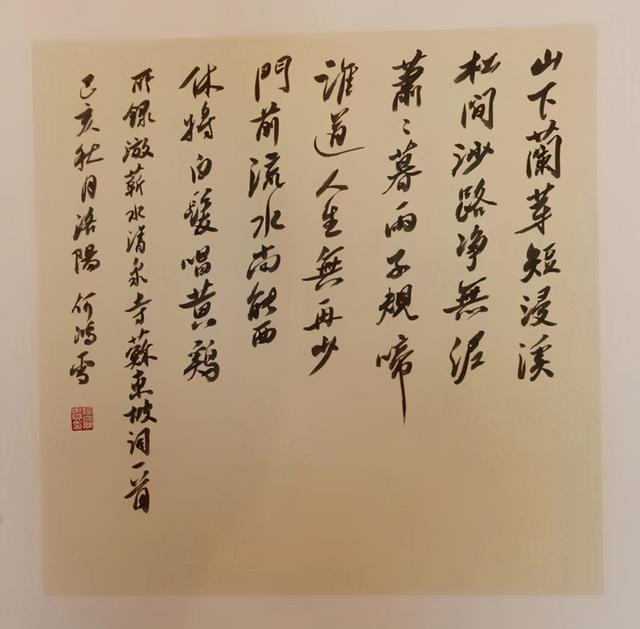 山下蘭芽短浸溪
松間沙路净無泥
蕭〻暮雨子規啼
誰道人生無再少
門前流水尚能西
休將白髮唱黄鷄
所録游蘄水清泉寺蘇東坡詞一首
己亥秋月洛陽 何鴻雪